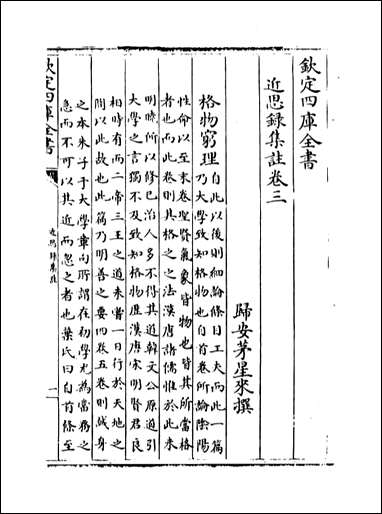 欽定四庫全書
近思録集註卷三
歸安茅星來撰
格物窮理
自此以後則細論條目工夫而此一篇
乃大學致知格物也自首卷所論陰陽
性命以至末卷聖賢氣象皆物也皆其所當格
者也而此卷則其格之之法漢唐諸儒惟於此未
明曉所以修已治人多不得其道韓文公原道引
大學之言獨不及致知格物雖漢唐宋明賢君良
相時有而二帝三王之道未嘗一日行於天地之
間以此故也此篇乃明善之要四卷五卷則誠身
之本朱子于大學章句所謂在初學尤為當務之
急而不可以其近而忽之者也葉氏曰自首條至
欽定四庫全書
近思録集註
一